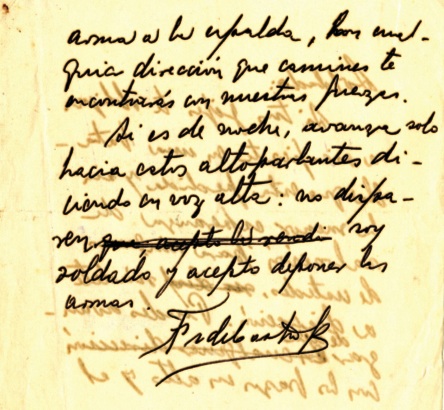 arma a la espalda, por cual-
quier dirección que camines te
encontrarás con nuestras fuerzas.
Si es de noche, avanza solo
hacia estos altoparlantes di-
ciendo en voz alta: no dispa-
ren, que acepto la rendi soy
soldado y acepto deponer las
armas.